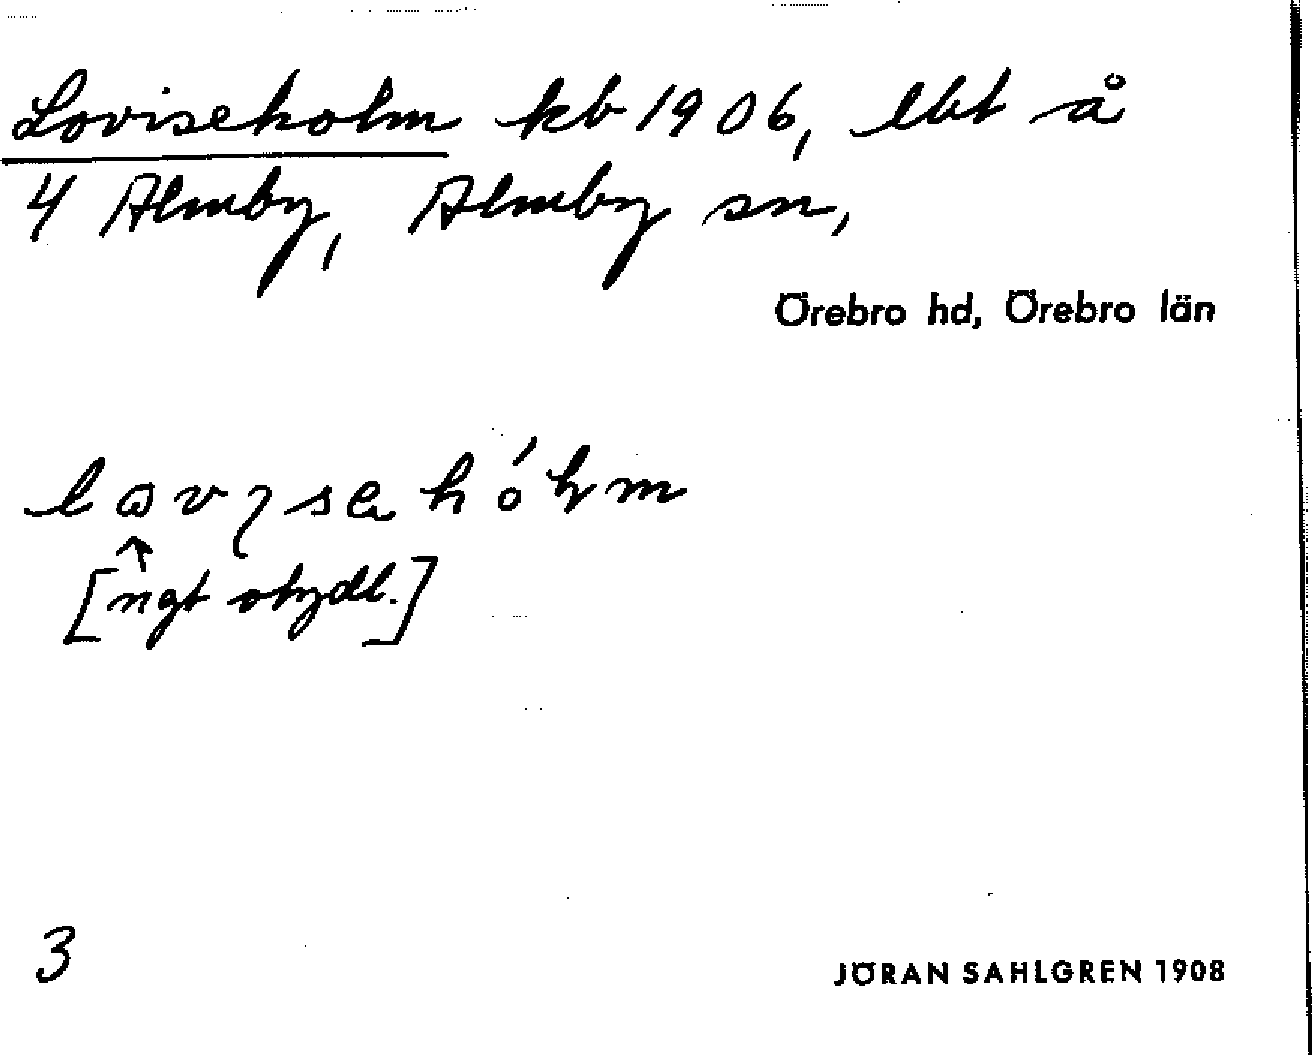 Loviseholm kb 1906, lbt å
4 Almby, Almby sn,
Örebro hd, Örebro län
[ngt otydl.]
3
JÖRAN SAHLGREN 1908